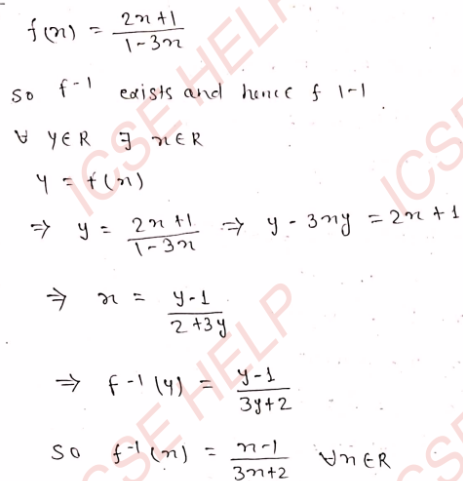 f(x) = (2x+1)/(1-3x)
so f^-1 exists and hence f 1-1
∀ y∈R ∃ x∈R
y = f(x)
⇒ y = (2x+1)/(1-3x) ⇒ y - 3xy = 2x+1
⇒ x = (y-1)/(2+3y)
⇒ f^-1(y) = (y-1)/(3y+2)
so f^-1(x) = (x-1)/(3x+2) ∀x∈R
ICSE HELP
ICSE HELP
ICSE HELP